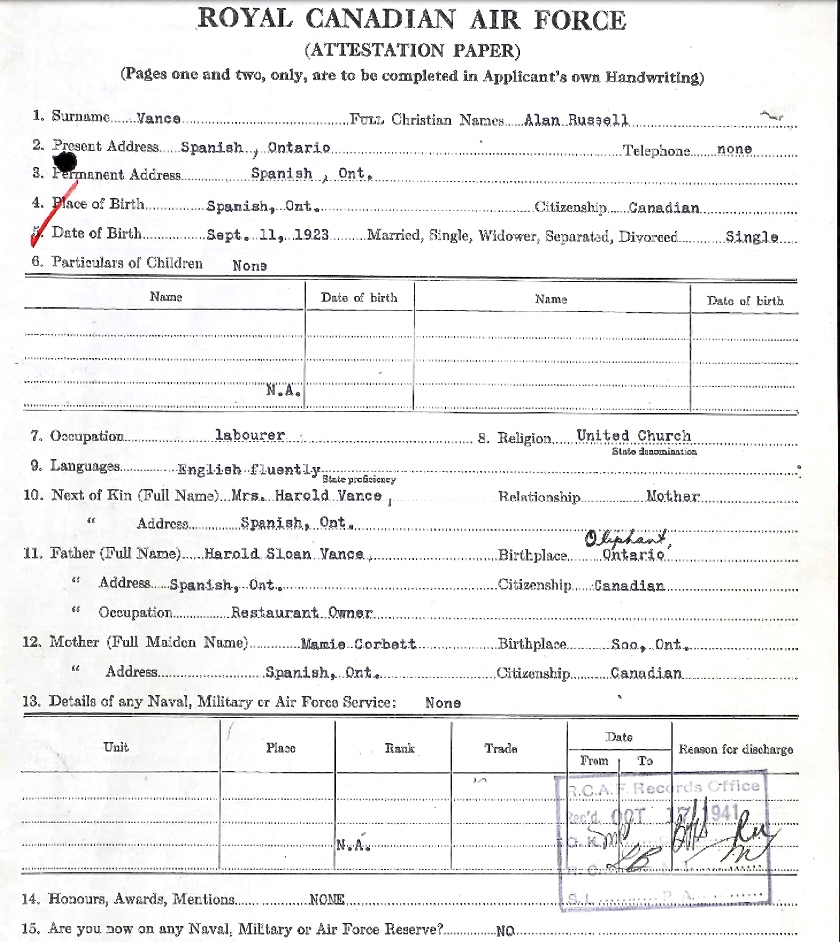 ROYAL CANADIAN AIR FORCE
(ATTESTATION PAPER)
(Pages one and two, only, are to be completed in Applicant's own Handwriting)
1. Surname Vance FULL Christian Names Alan Russell
2. Present Address Spanish, Ontario Telephone none
3. Permanent Address Spanish, Ont.
4. Place of Birth Spanish, Ont. Citizenship Canadian
5. Date of Birth Sept. 11, 1923 Married, Single, Widower, Separated, Divorced Single
6. Particulars of Children None
Name Date of birth Name Date of birth
N.A.
7. Occupation labourer 8. Religion United Church
State denomination
9. Languages English fluently
State proficiency
10. Next of Kin (Full Name) Mrs. Harold Vance, Relationship Mother
" Address Spanish, Ont.
Oliphant,
11. Father (Full Name) Harold Sloan Vance, Birthplace Ontario
" Address Spanish, Ont. Citizenship Canadian
" Occupation Restaurant Owner
12. Mother (Full Maiden Name) Mamie Corbett Birthplace Soo, Ont.
" Address Spanish, Ont. Citizenship Canadian
13. Details of any Naval, Military or Air Force Service: None
Unit Place Rank Trade Date Reason for discharge
From To
R.C.A.F. Records Office
Rec'd. OCT 17 1941
O.K.
N.A.
S.I. P.A.
14. Honours, Awards, Mentions NONE
15. Are you now on any Naval, Military or Air Force Reserve? NO